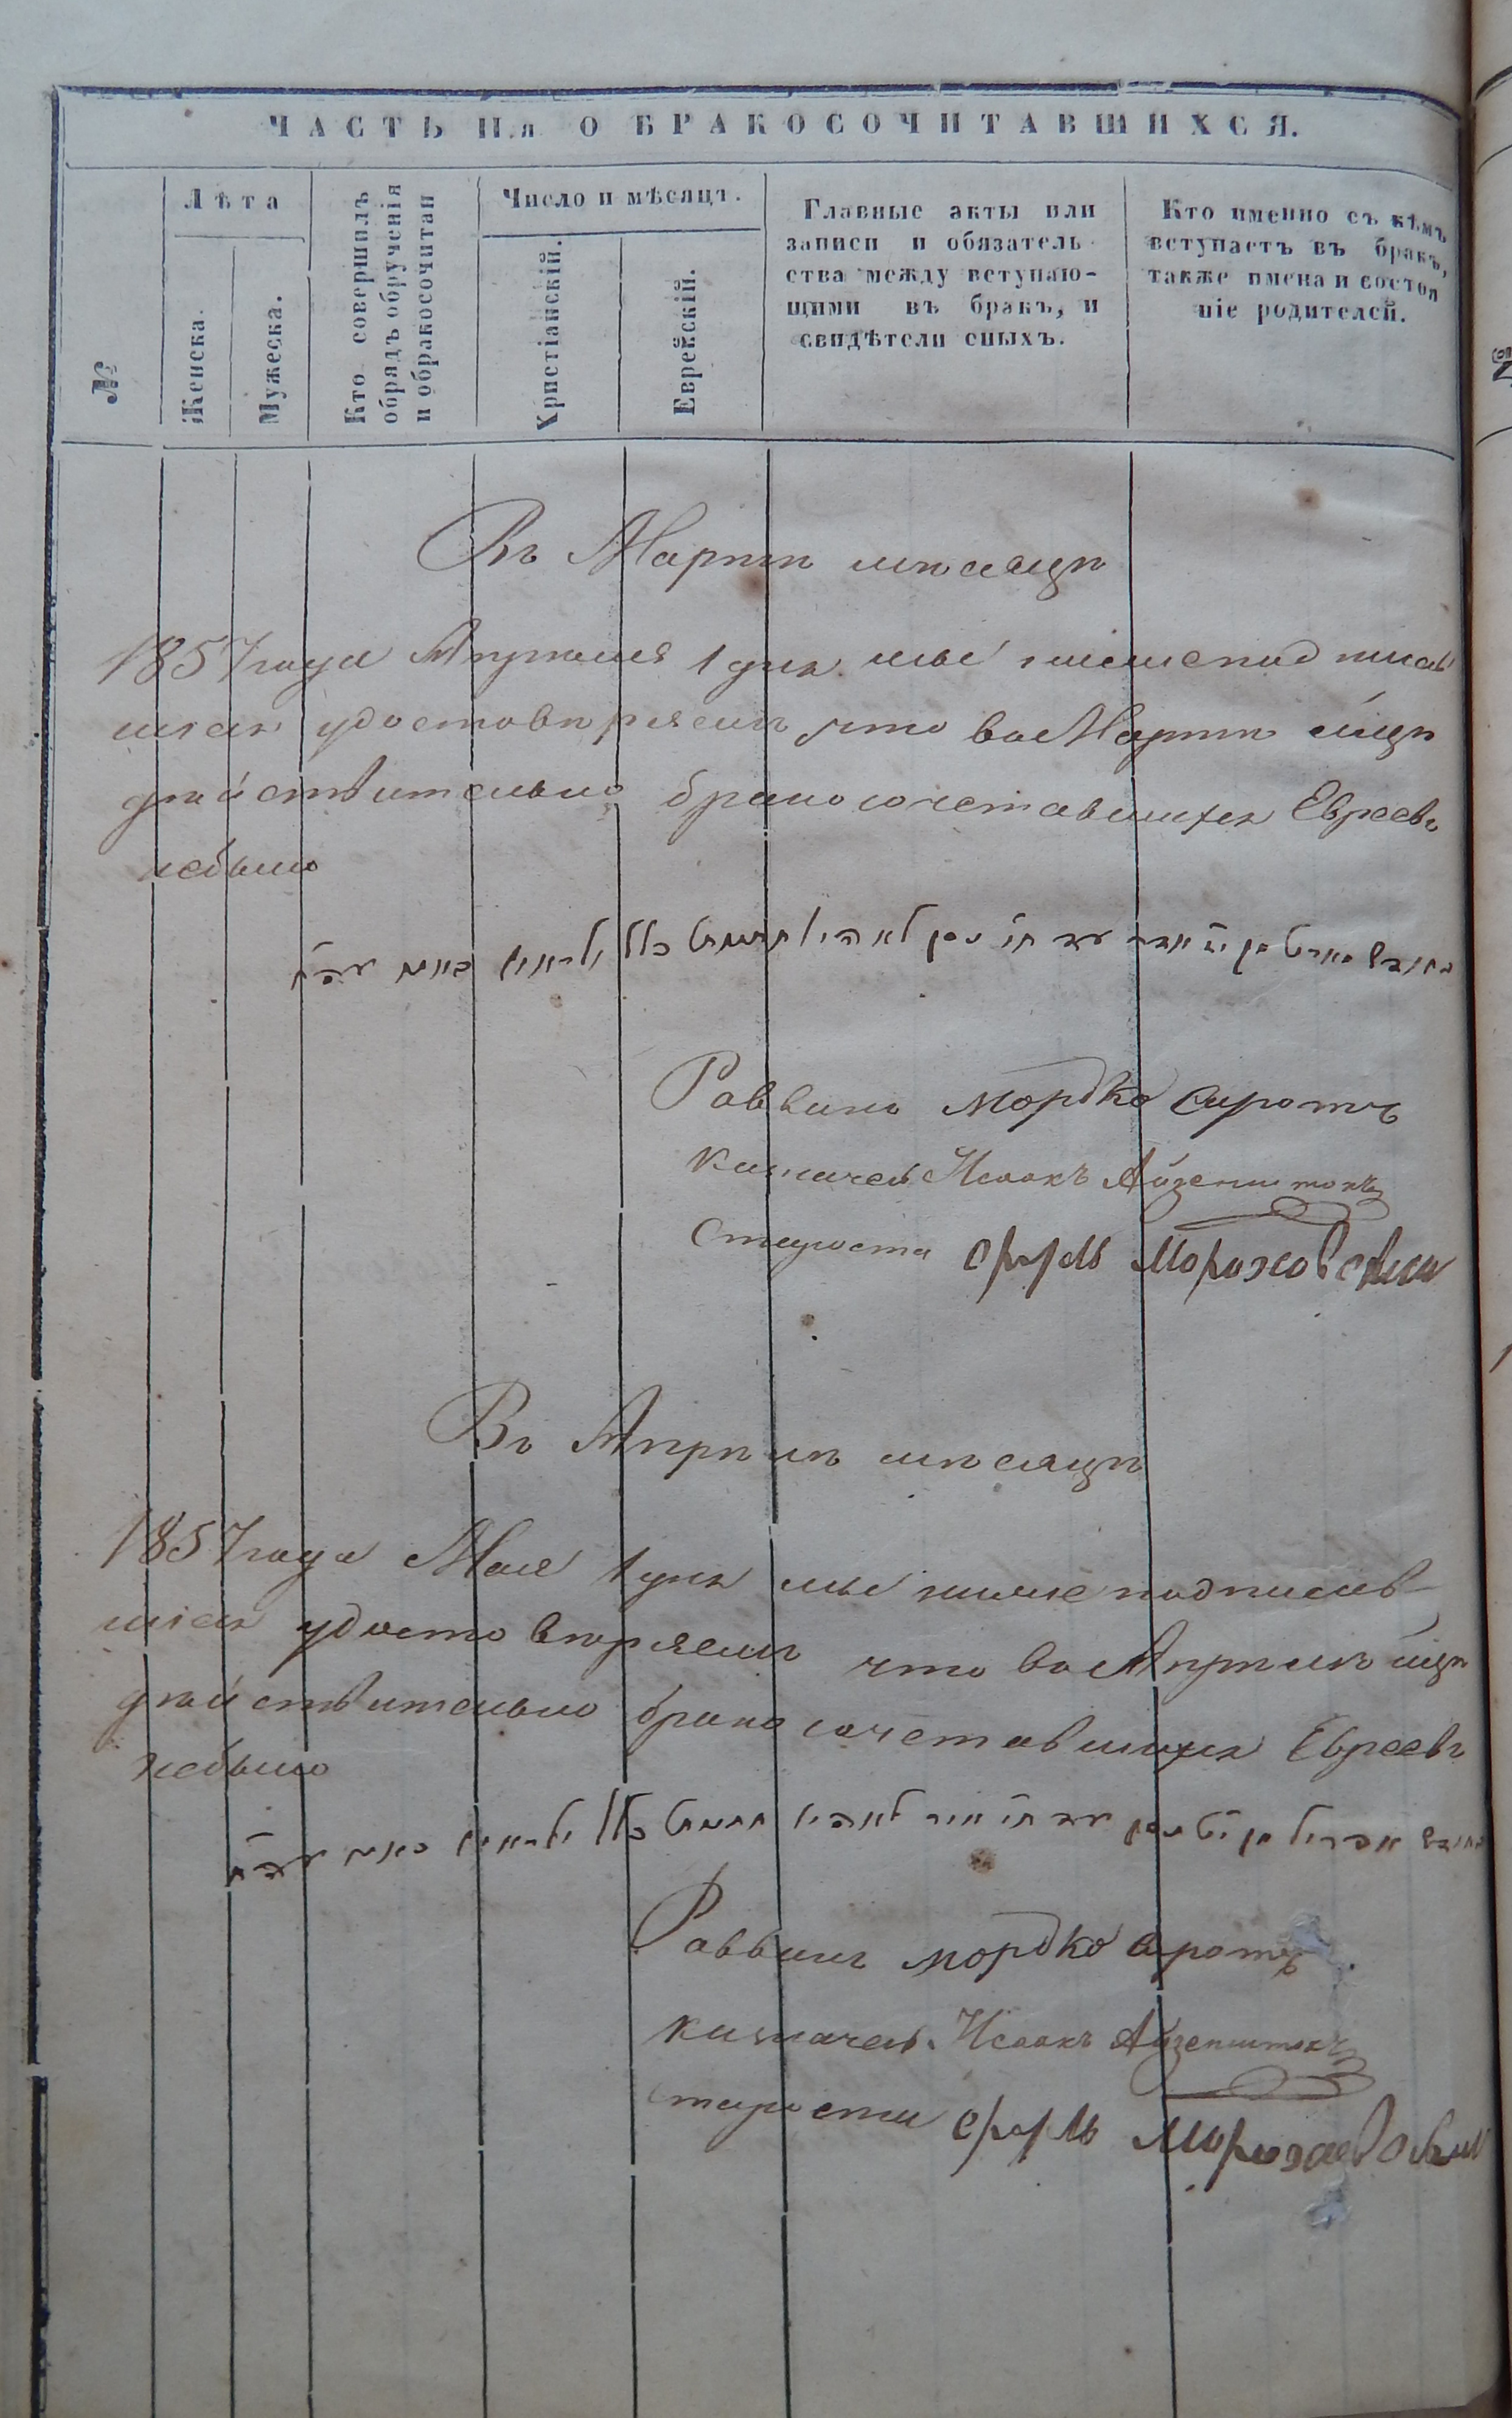 ЧАСТЬ II.я О БРАКОСОЧИТАВШИХСЯ.
№
Лѣта
Женска.
Мужеска.
Кто совершилъ
обрядъ обрученія
и обракосочитан
Число и мѣсяцъ.
Христіанскій.
Еврейскій.
Главные акты или
записи и обязатель-
ства между вступаю-
щими въ бракъ, и
свидѣтели оныхъ.
Кто именно съ кѣмъ
вступаетъ въ бракъ,
также имена и состоя
ніе родителей.
Въ Мартѣ мѣсяцѣ
1857 года Апрѣля 1 дня мы нижеподписав
шіеся удостовѣряемъ что во Мартѣ мцѣ
дѣйствительно бракосочетавшихся Евреевъ
небыло
Раввинъ Мордко Сиротъ
Казначей Исаакъ Айзенштокъ
Староста Сруль
Въ Апрѣлѣ мѣсяцѣ
1857 года Мая 1 дня мы нижеподписав-
шіеся удостовѣряемъ что во Апрѣлѣ мцѣ
дѣйствительно бракосочетавшихся Евреевъ
небыло
Раввинъ Мордко Сиротъ
Казначей Исаакъ Айзенштокъ
Староста Сруль